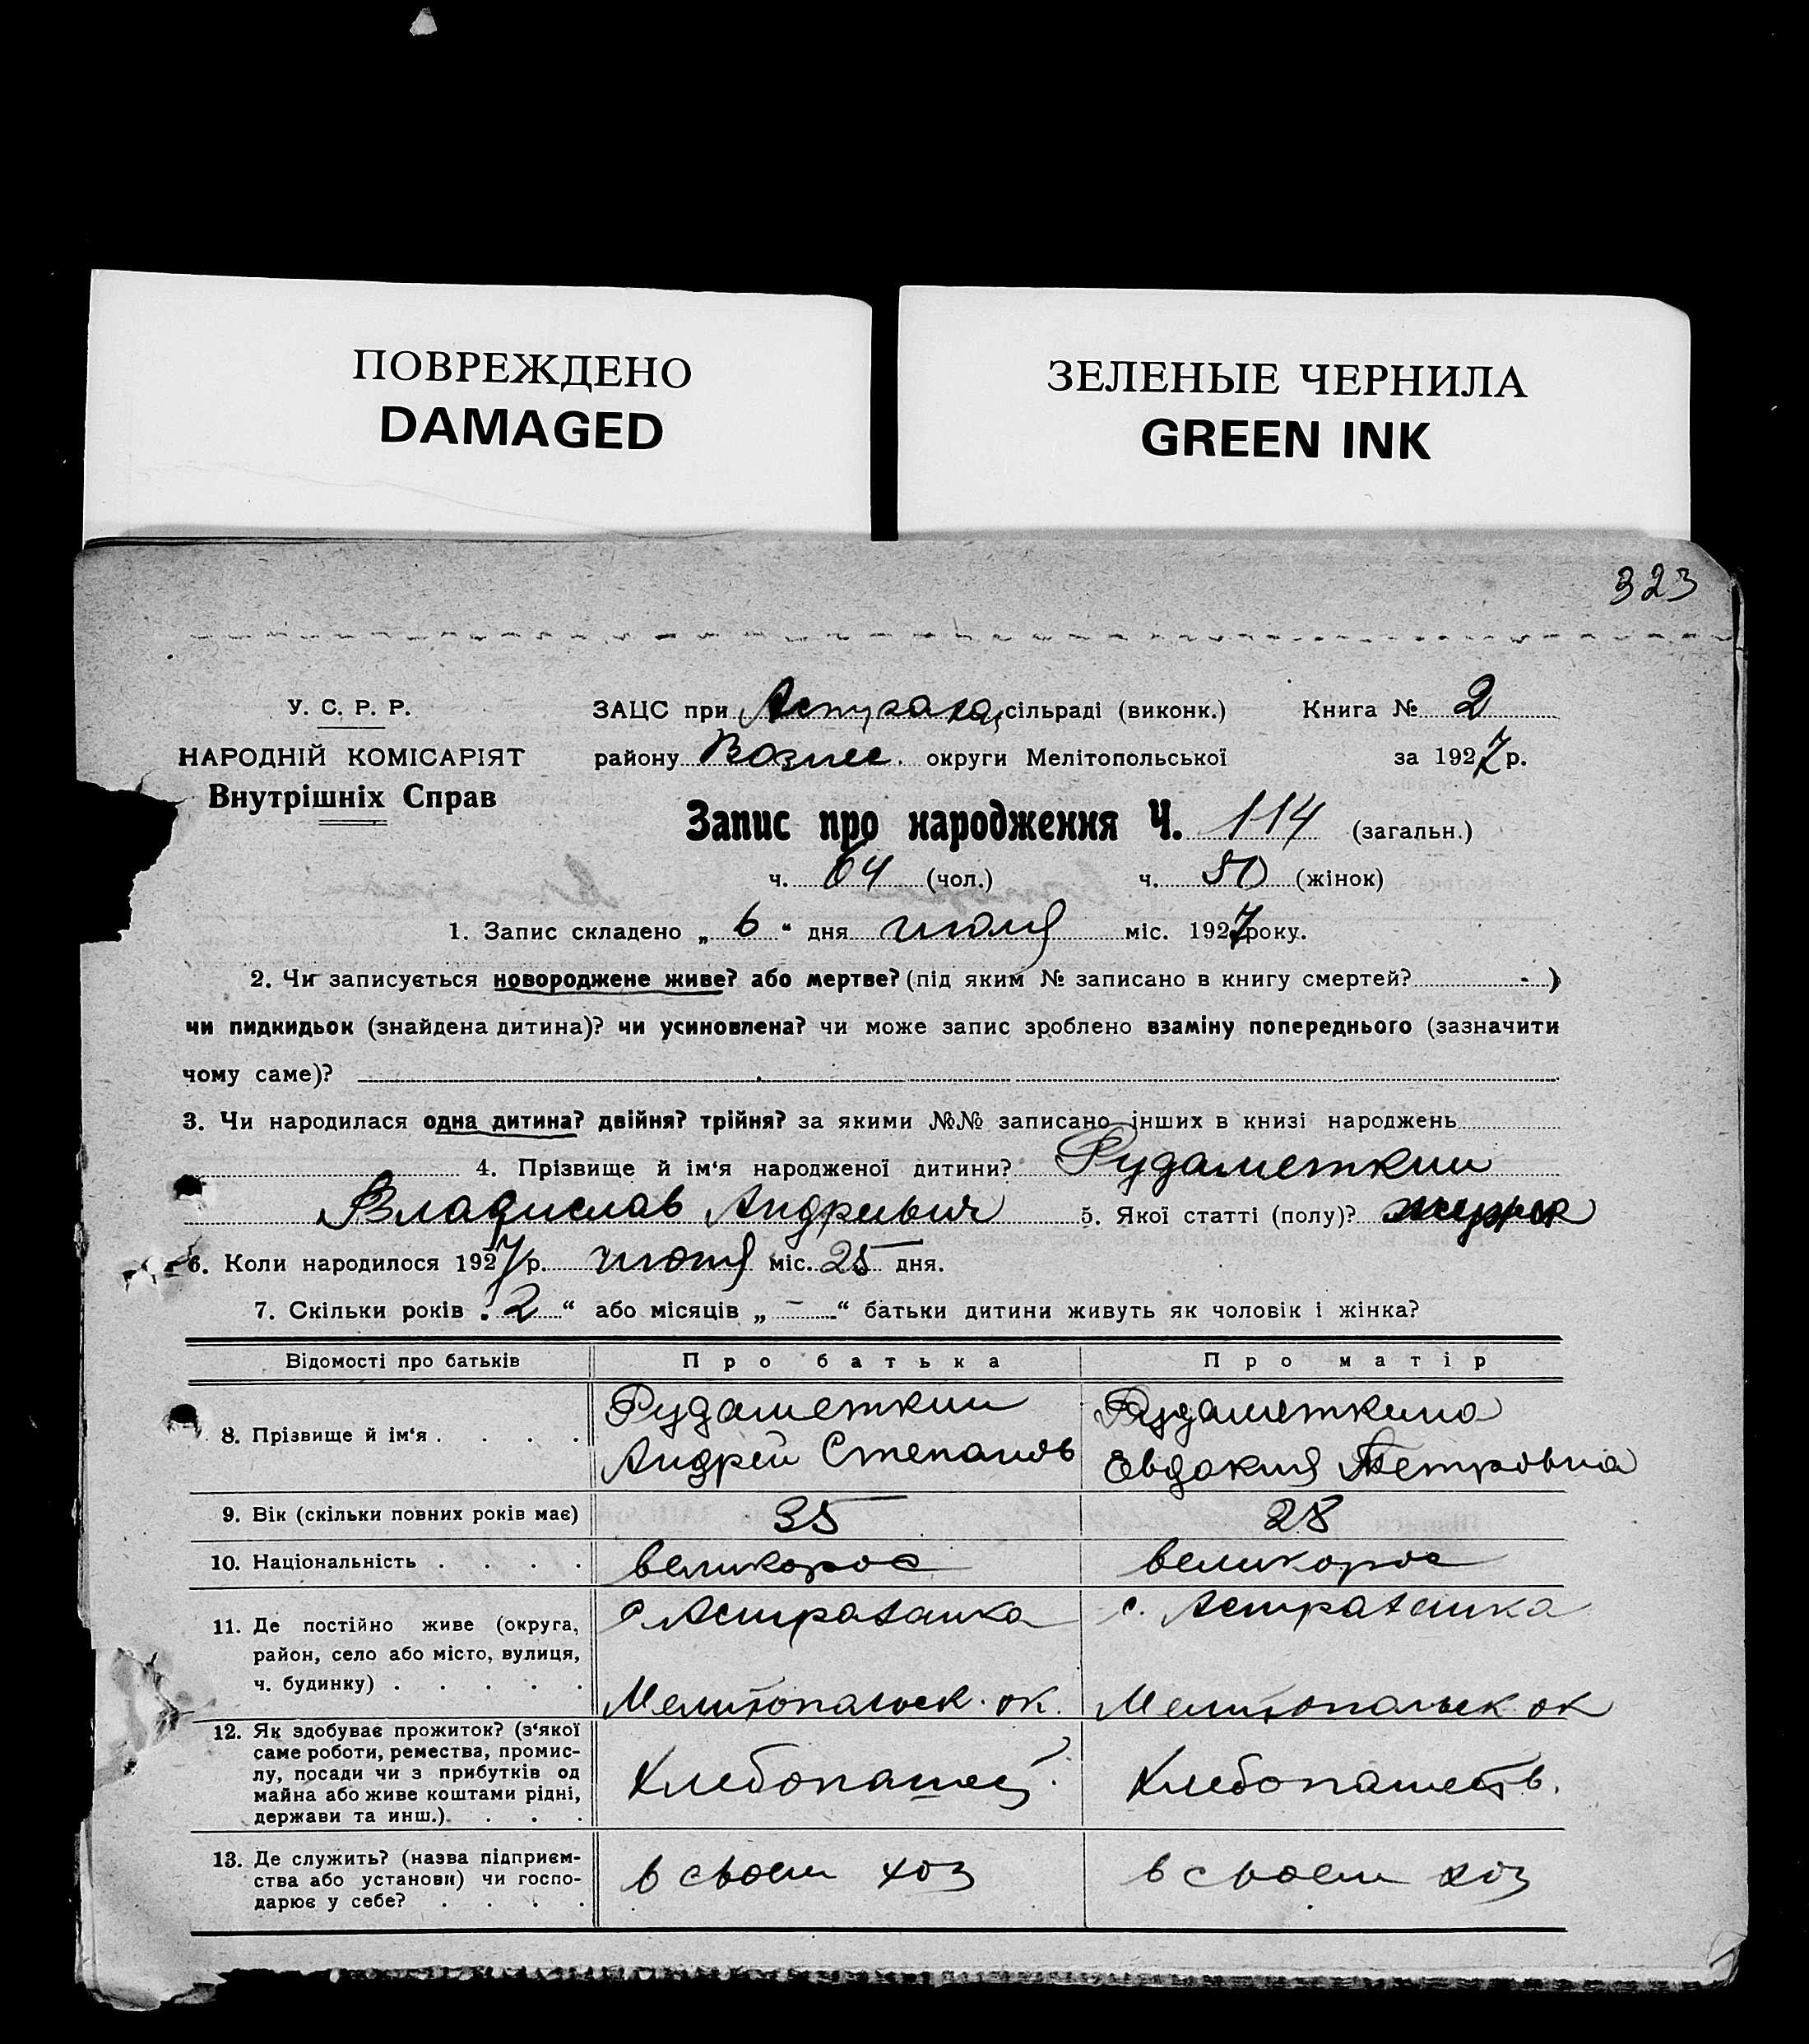 ПОВРЕЖДЕНО
DAMAGED
ЗЕЛЕНЫЕ ЧЕРНИЛА
GREEN INK
323
У. С. Р. Р.
НАРОДНІЙ КОМІСАРІЯТ
Внутрішніх Справ
ЗАЦС при сільраді (виконк.) Книга № 2
району Возне. округи Мелітопольської за 1927 р.
Запис про народження Ч. 114 (загальн.)
ч. 64 (чол.) ч. 50 (жінок)
1. Запис складено „ 6 “ дня июля міс. 1927 року.
2. Чи записується новороджене живе? або мертве? (під яким № записано в книгу смертей? - )
чи пидкидьок (знайдена дитина)? чи усиновлена? чи може запис зроблено взаміну попереднього (зазначити
чому саме)?
3. Чи народилася одна дитина? двійня? трійня? за якими №№ записано інших в книзі народжень
4. Прізвище й ім‘я народженої дитини? Рудаметкин
Владислав Андреевич 5. Якої статті (полу)?
6. Коли народилося 1927 р. июня міс. 25 дня.
7. Скільки років „ 2 “ або місяців „ – “ батьки дитини живуть як чоловік і жінка?
Відомості про батьків Про батька Про матір
8. Прізвище й ім‘я . . . . Рудаметкин Андрей Степанов Рудаметкина Евдокия Петровна
9. Вік (скільки повних років має) 35 28
10. Національність . . . . великорос великорос
11. Де постійно живе (округа, с. Астраханка с. Астраханка
район, село або місто, вулиця,
ч. будинку) . . . . . Мелитопольск. ок. Мелитопольск ок
12. Як здобуває прожиток? (з‘якої
саме роботи, ремества, промис-
лу, посади чи з прибутків од Хлебопашец. Хлебопашеств.
майна або живе коштами рідні,
держави та инш.). . . .
13. Де служить? (назва підприєм-
ства або установи) чи госпо- в своем хоз в своем хоз
дарює у себе? . . . .